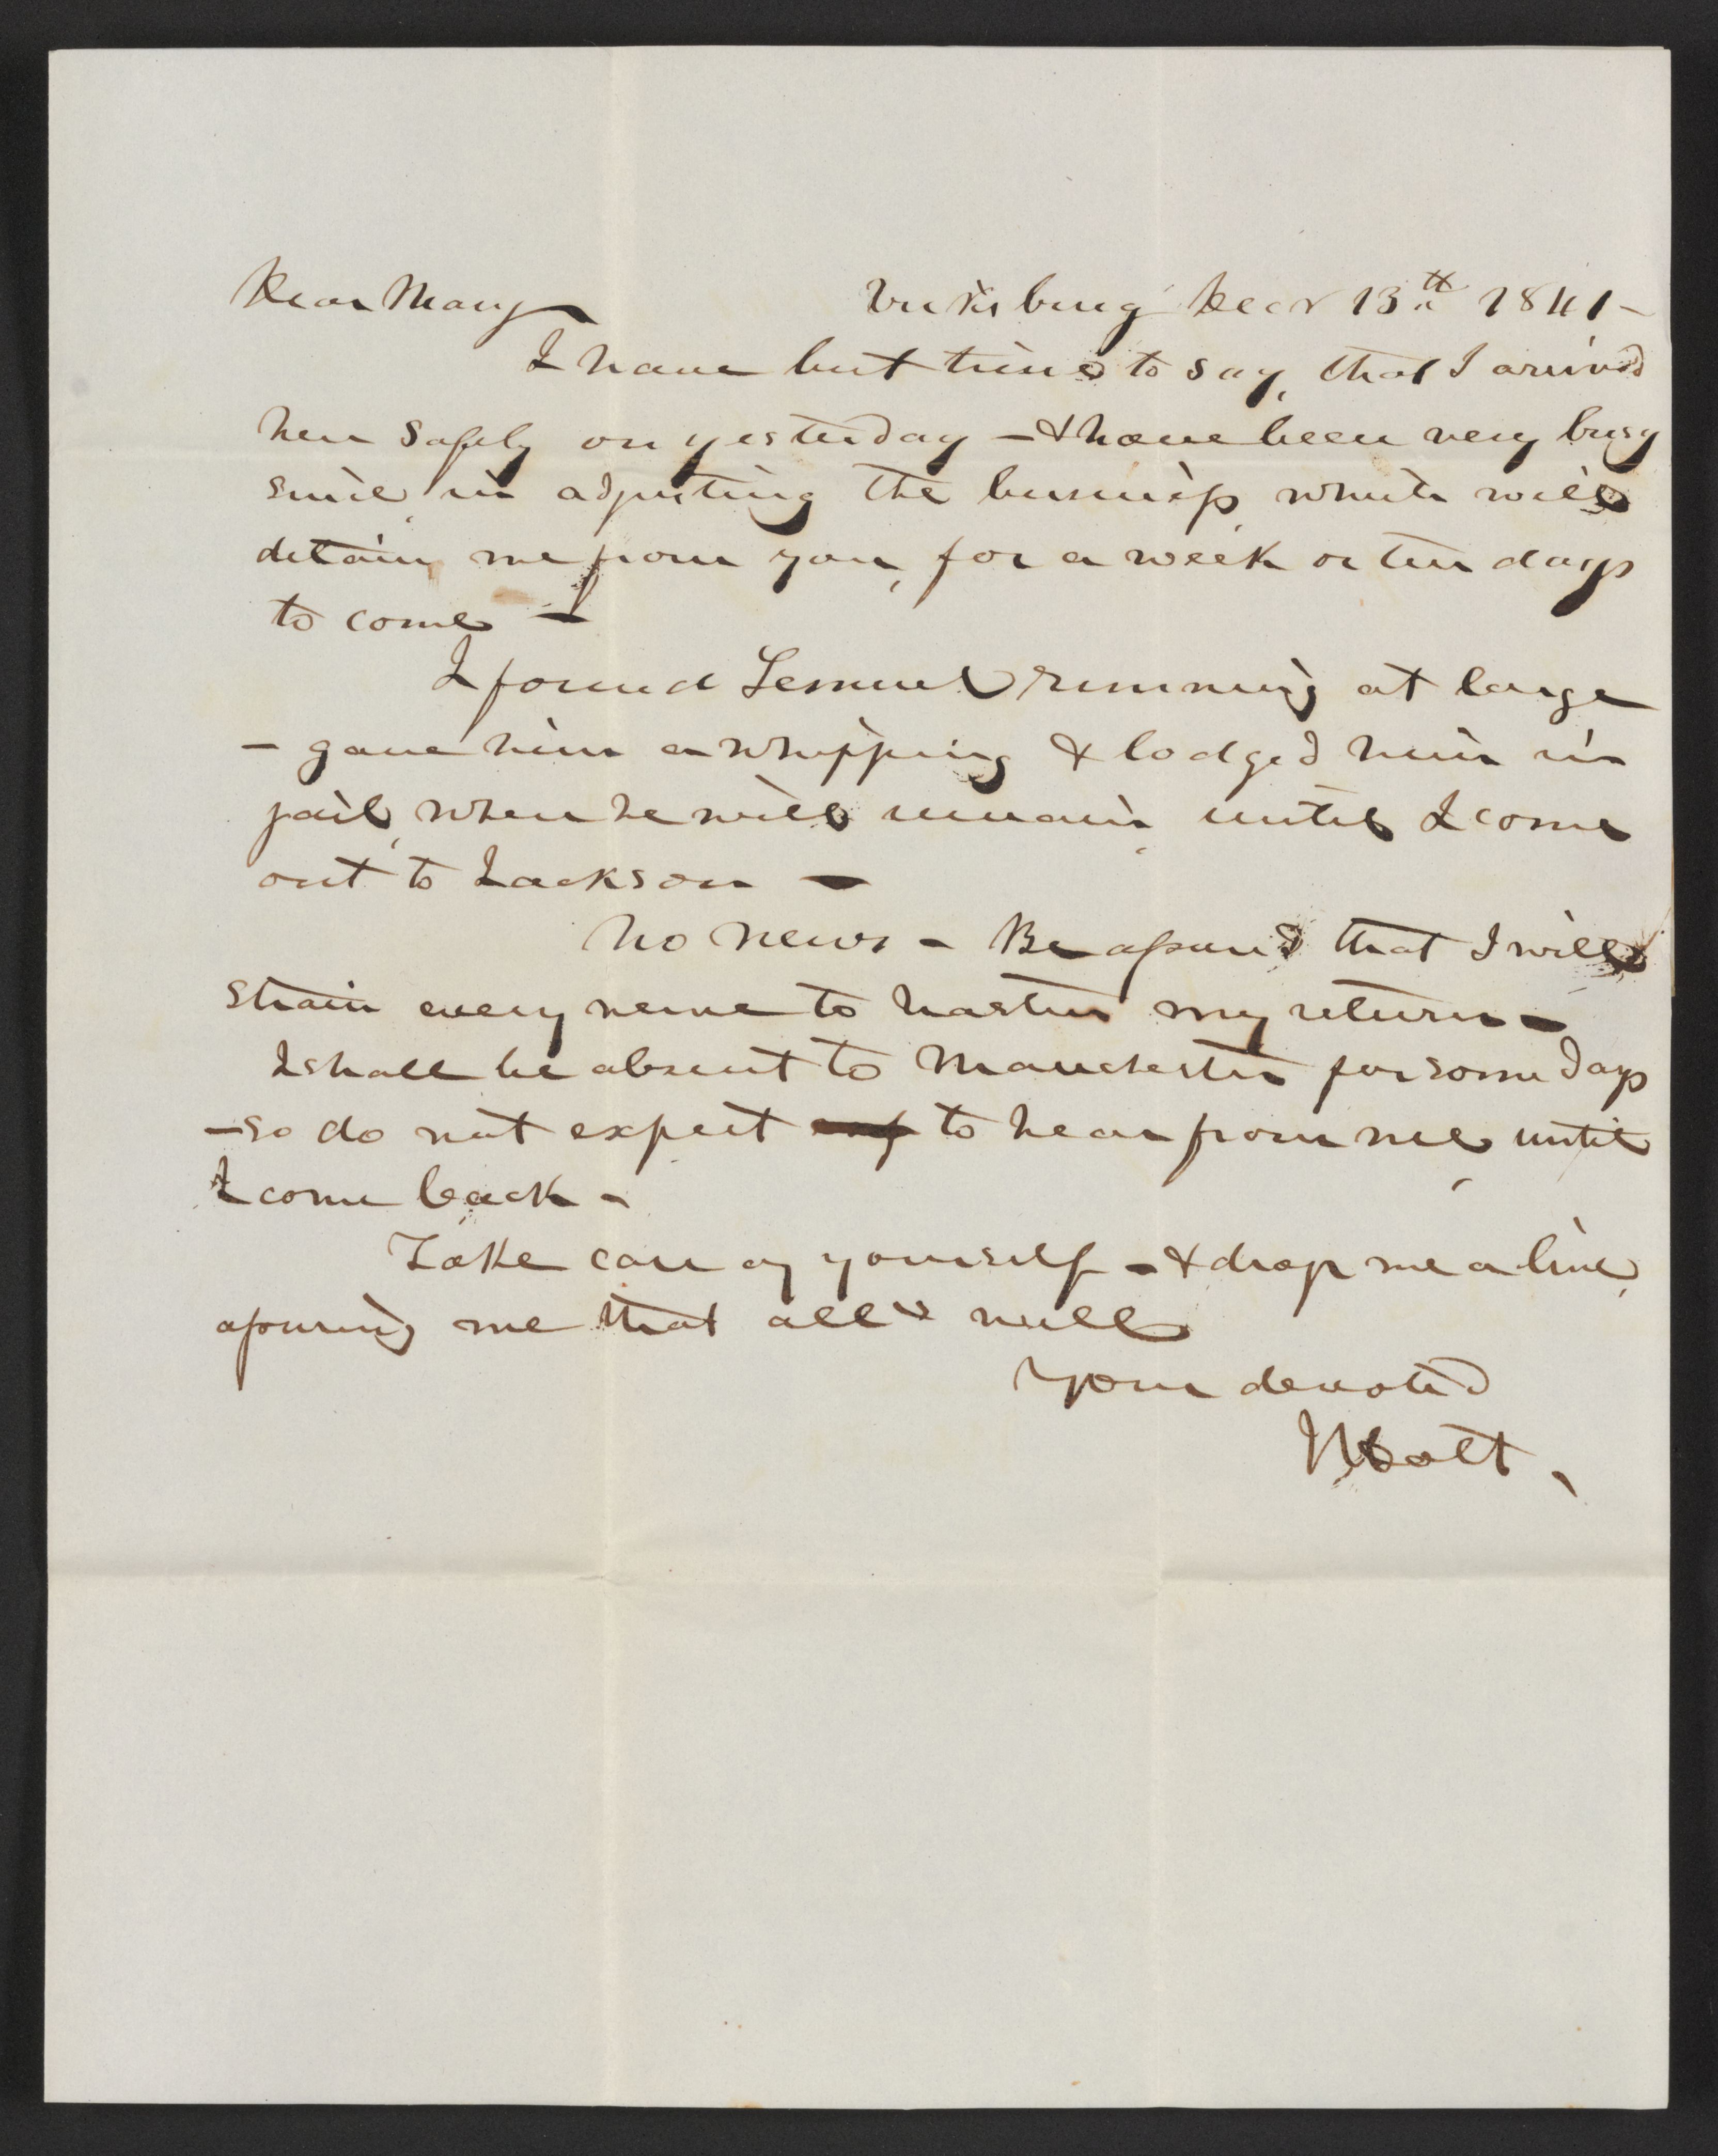 Dear Mary Vicksburg Decr 13th 1841 -
I have but time to say, that I arrived
here safely on yesterday - & have been very busy
since, in adjusting the business which will
detain me from you, for a week or ten days
to come -
I found Lemuel running at large
- gave him a whipping & lodged him in
jail, where he will remain, until I come
out to Jackson -
No news - Be assured that I will
strain every nerve to hasten my return -
I shall be absent to Manchester for some days
- so do not expect to hear from me, until
I come back -
Take care of yourself - & drop me a line,
assuring me that all is well
Your devoted
J Holt.